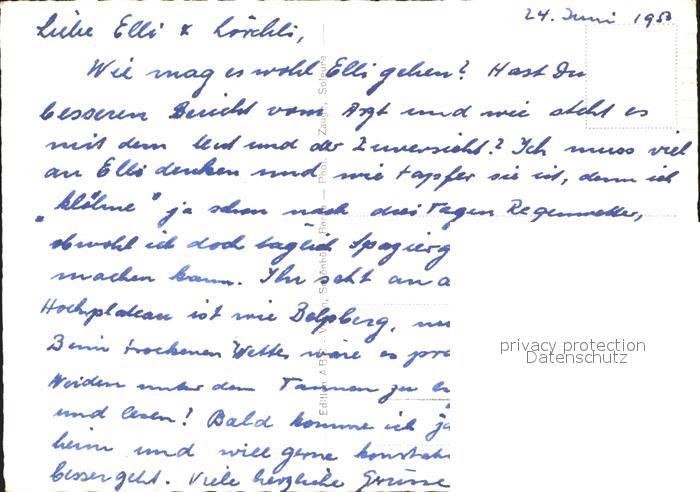 24. Juni 1953
Liebe Elli & Lörchli,
Wie mag es wohl Elli gehen? Hast Du
besseren Bericht vom Arzt und wie steht es
mit dem Mut und der Zuversicht? Ich muss viel
an Elli denken und wie tapfer sie ist, denn ich
"klöhne" ja schon nach drei Tagen Regenwetter,
obwohl ich doch täglich Spazierg
machen kann. Ihr seht an a
Hochplateau ist wie Belpberg,
Beim trockenen Wetter wäre es
Weiden unter den Tannen zu
und lesen! Bald komme ich ja
heim und will gerne
besser geht. Viele herzliche Grüsse
Phot. Zaugg, Solothurn
privacy protection
Datenschutz